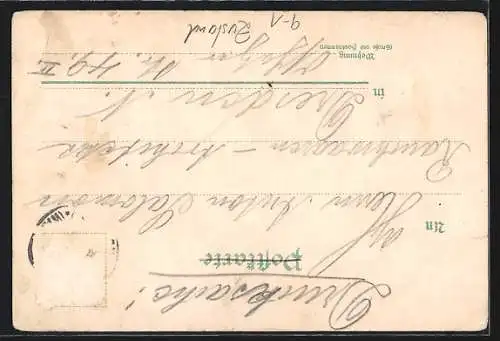 Drucksache!
Postkarte
An
Herrn Anton Salomon
Architekt
in
Dresden N.
Wohnung
(Straße und Hausnummer)
Str. 49 II.
9-1
Zustand